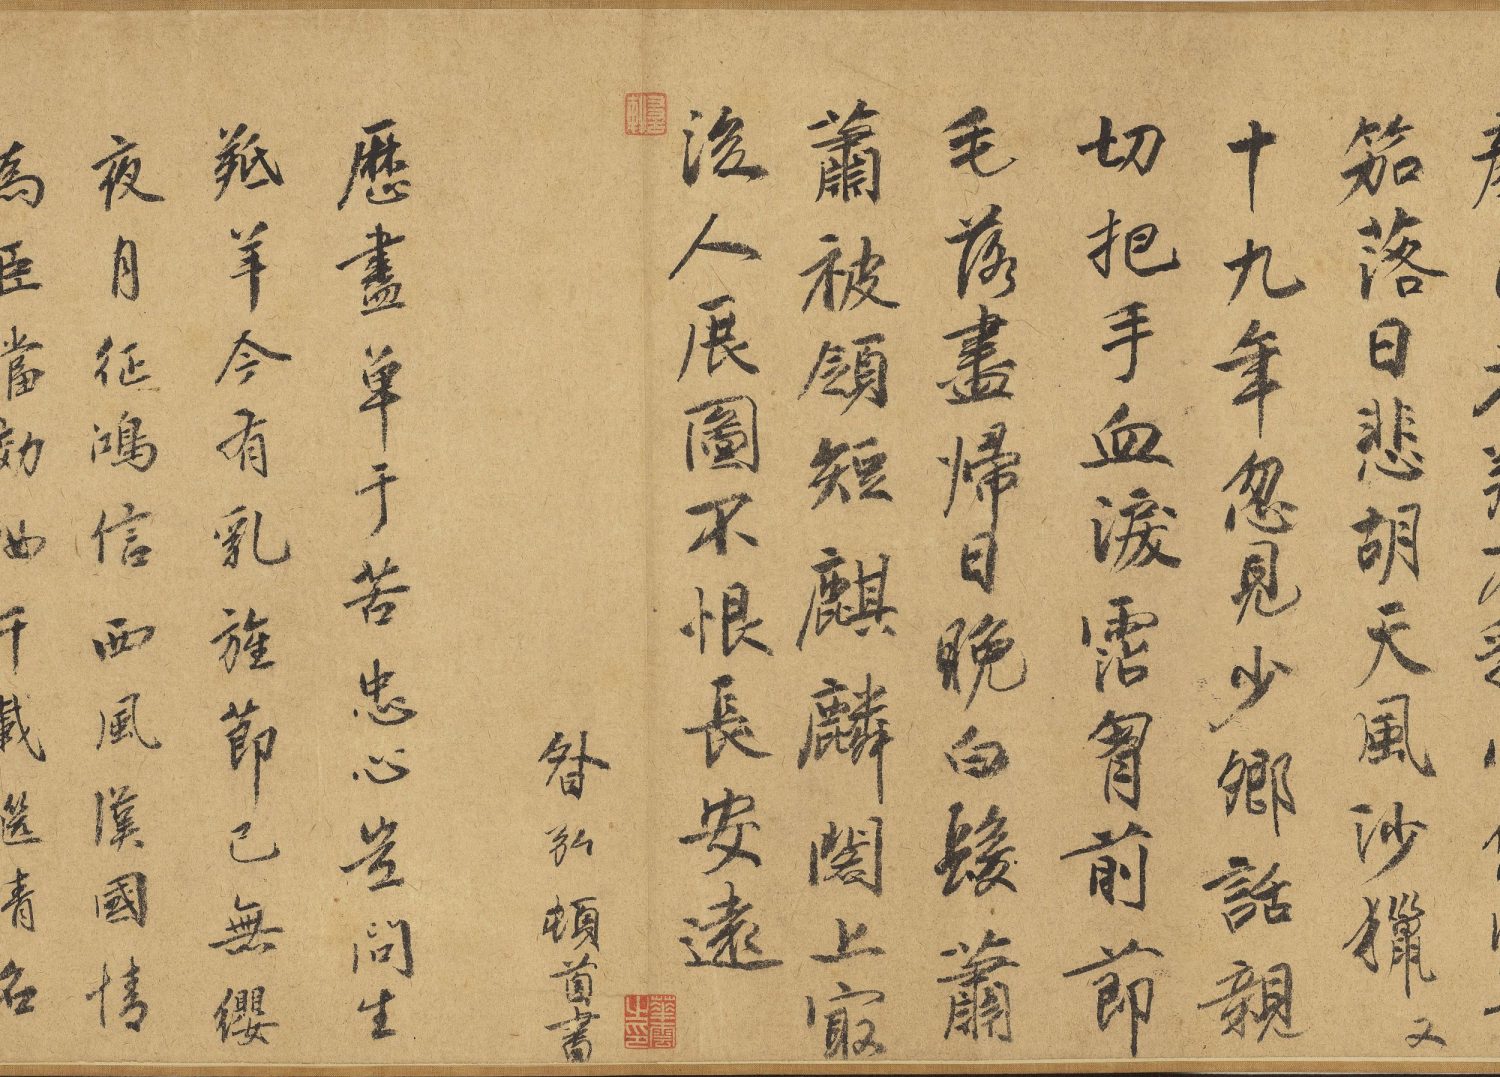 笳落日悲胡天風沙獵又
十九年忽見少卿話親
切把手血淚霑胷前節
毛落盡歸日晚白髮蕭
蕭被領短麒麟閣上寂
後人展圖不恨長安遠
昝弘頓首書
歷盡單于苦忠心豈問生
羝羊今有乳旌節已無纓
夜月征鴻信西風漢國情
為臣當効汝千載選青名